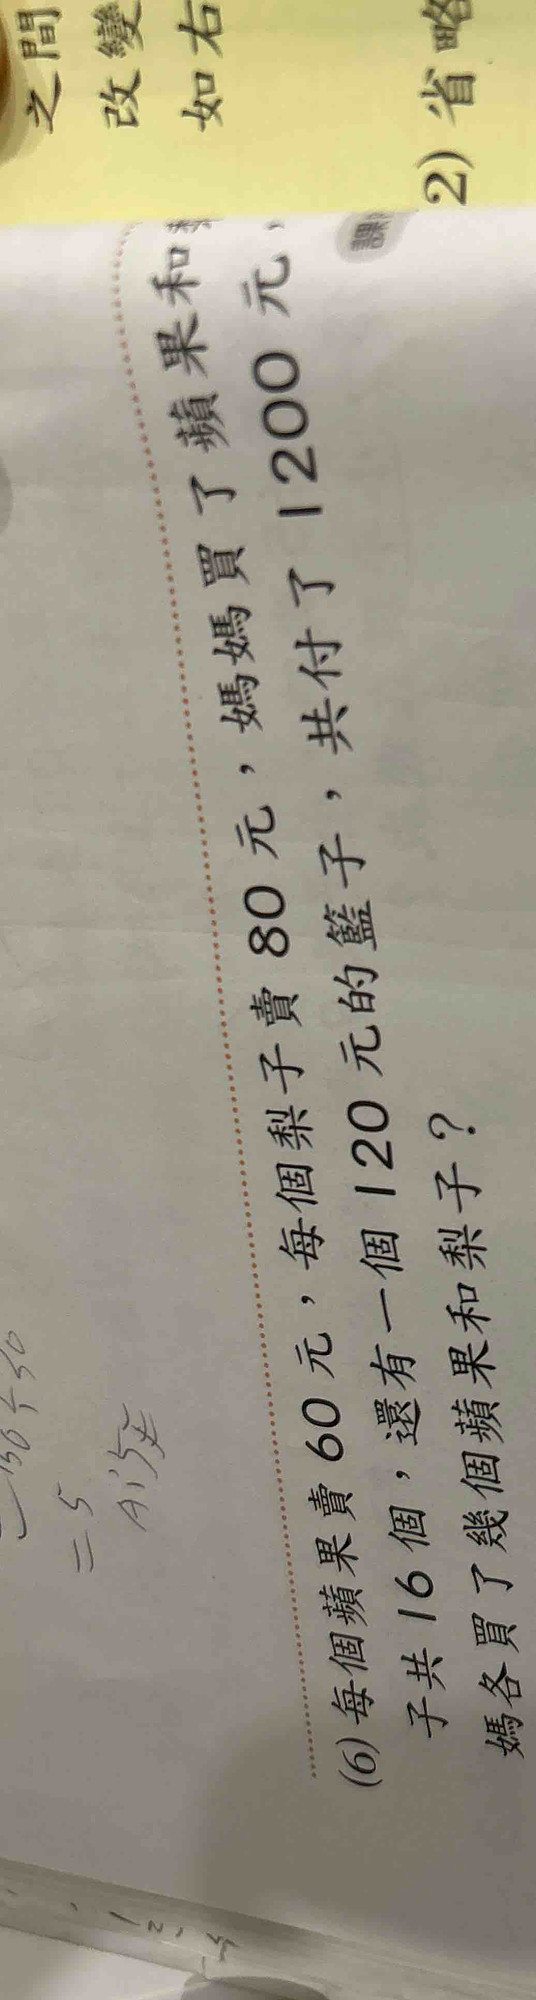 之間
改變
如右
2) 省略
= 5
A:5
(6) 每個蘋果賣 60 元，每個梨子賣 80 元，媽媽買了蘋果和
子共 16 個，還有一個 120 元的籃子，共付了 1200 元，
媽各買了幾個蘋果和梨子？